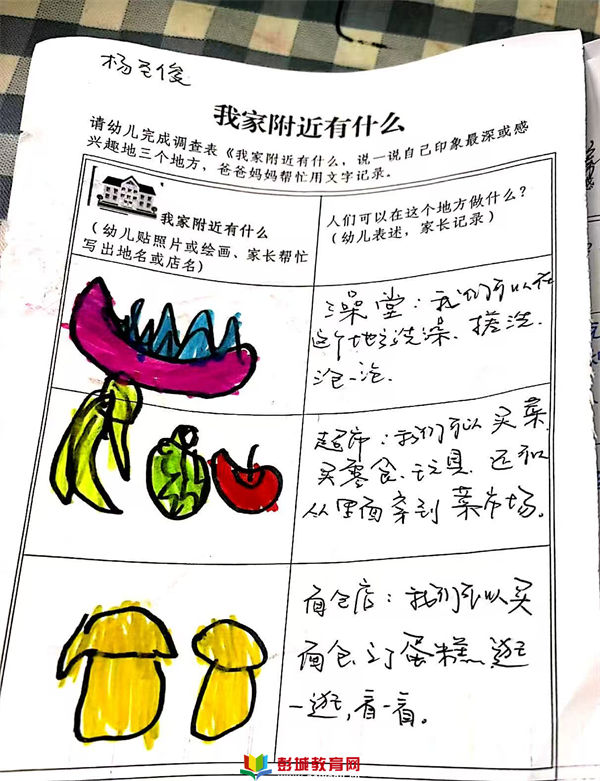 杨至俊
我家附近有什么
请幼儿完成调查表《我家附近有什么，说一说自己印象最深或感
兴趣地三个地方，爸爸妈妈帮忙用文字记录。
我家附近有什么
（幼儿贴照片或绘画、家长帮忙
写出地名或店名）
人们可以在这个地方做什么？
（幼儿表述，家长记录）
澡堂：我们可以在
这个地方洗澡、搓洗、
泡一泡.
超市：我们可以 买菜、
买零食、玩具、还可以
从里面穿到 菜市场。
面包店：我们可以买
面包、订蛋糕、逛
一逛，看一看。
彭城教育网